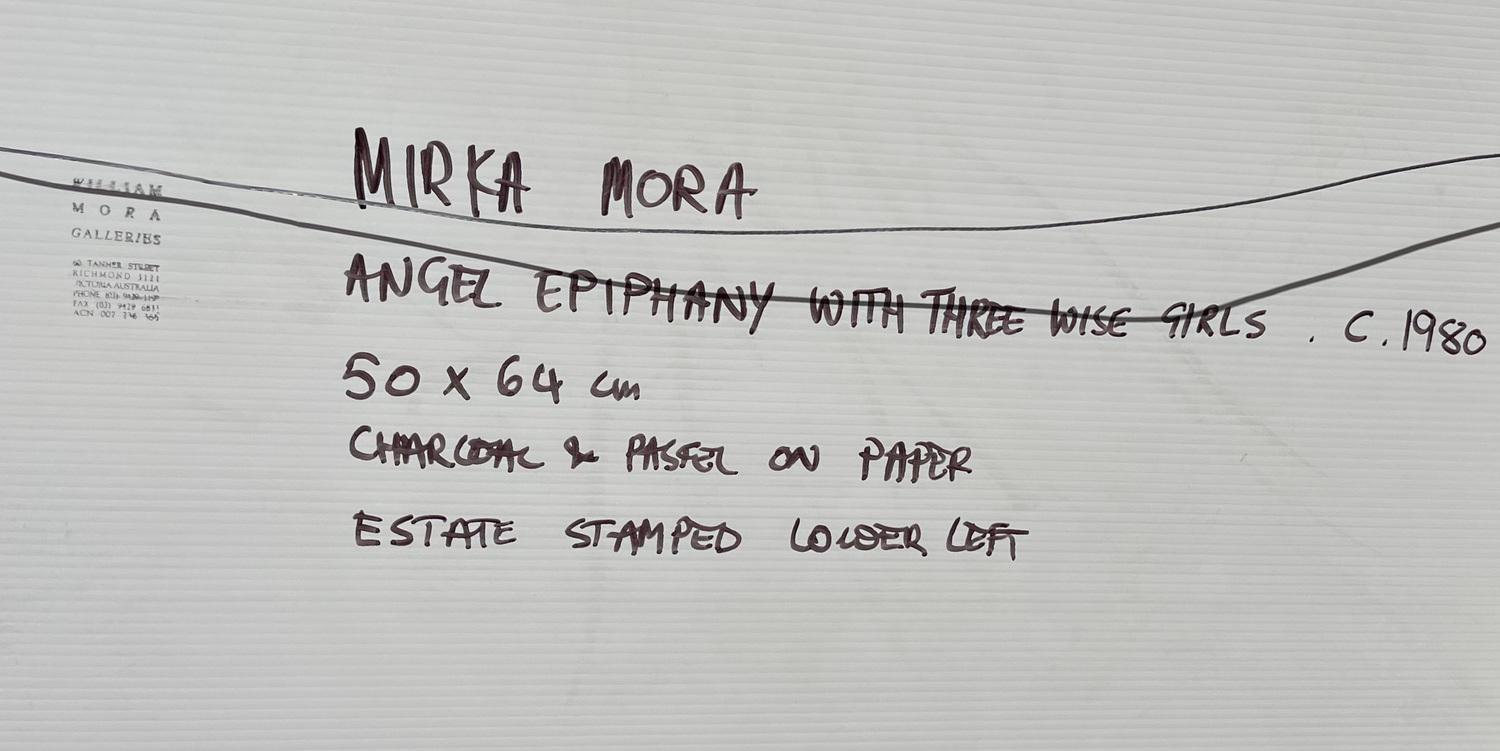 MIRKA MORA
ANGEL EPIPHANY WITH THREE WISE GIRLS . C.1980
50 x 64 cm
CHARCOAL & PASTEL ON PAPER
ESTATE STAMPED LOWER LEFT
WILLIAM
MORA
GALLERIES
60 TANNER STREET
RICHMOND 3121
VICTORIA AUSTRALIA
PHONE (03)
FAX (03) 9429
ACN 007